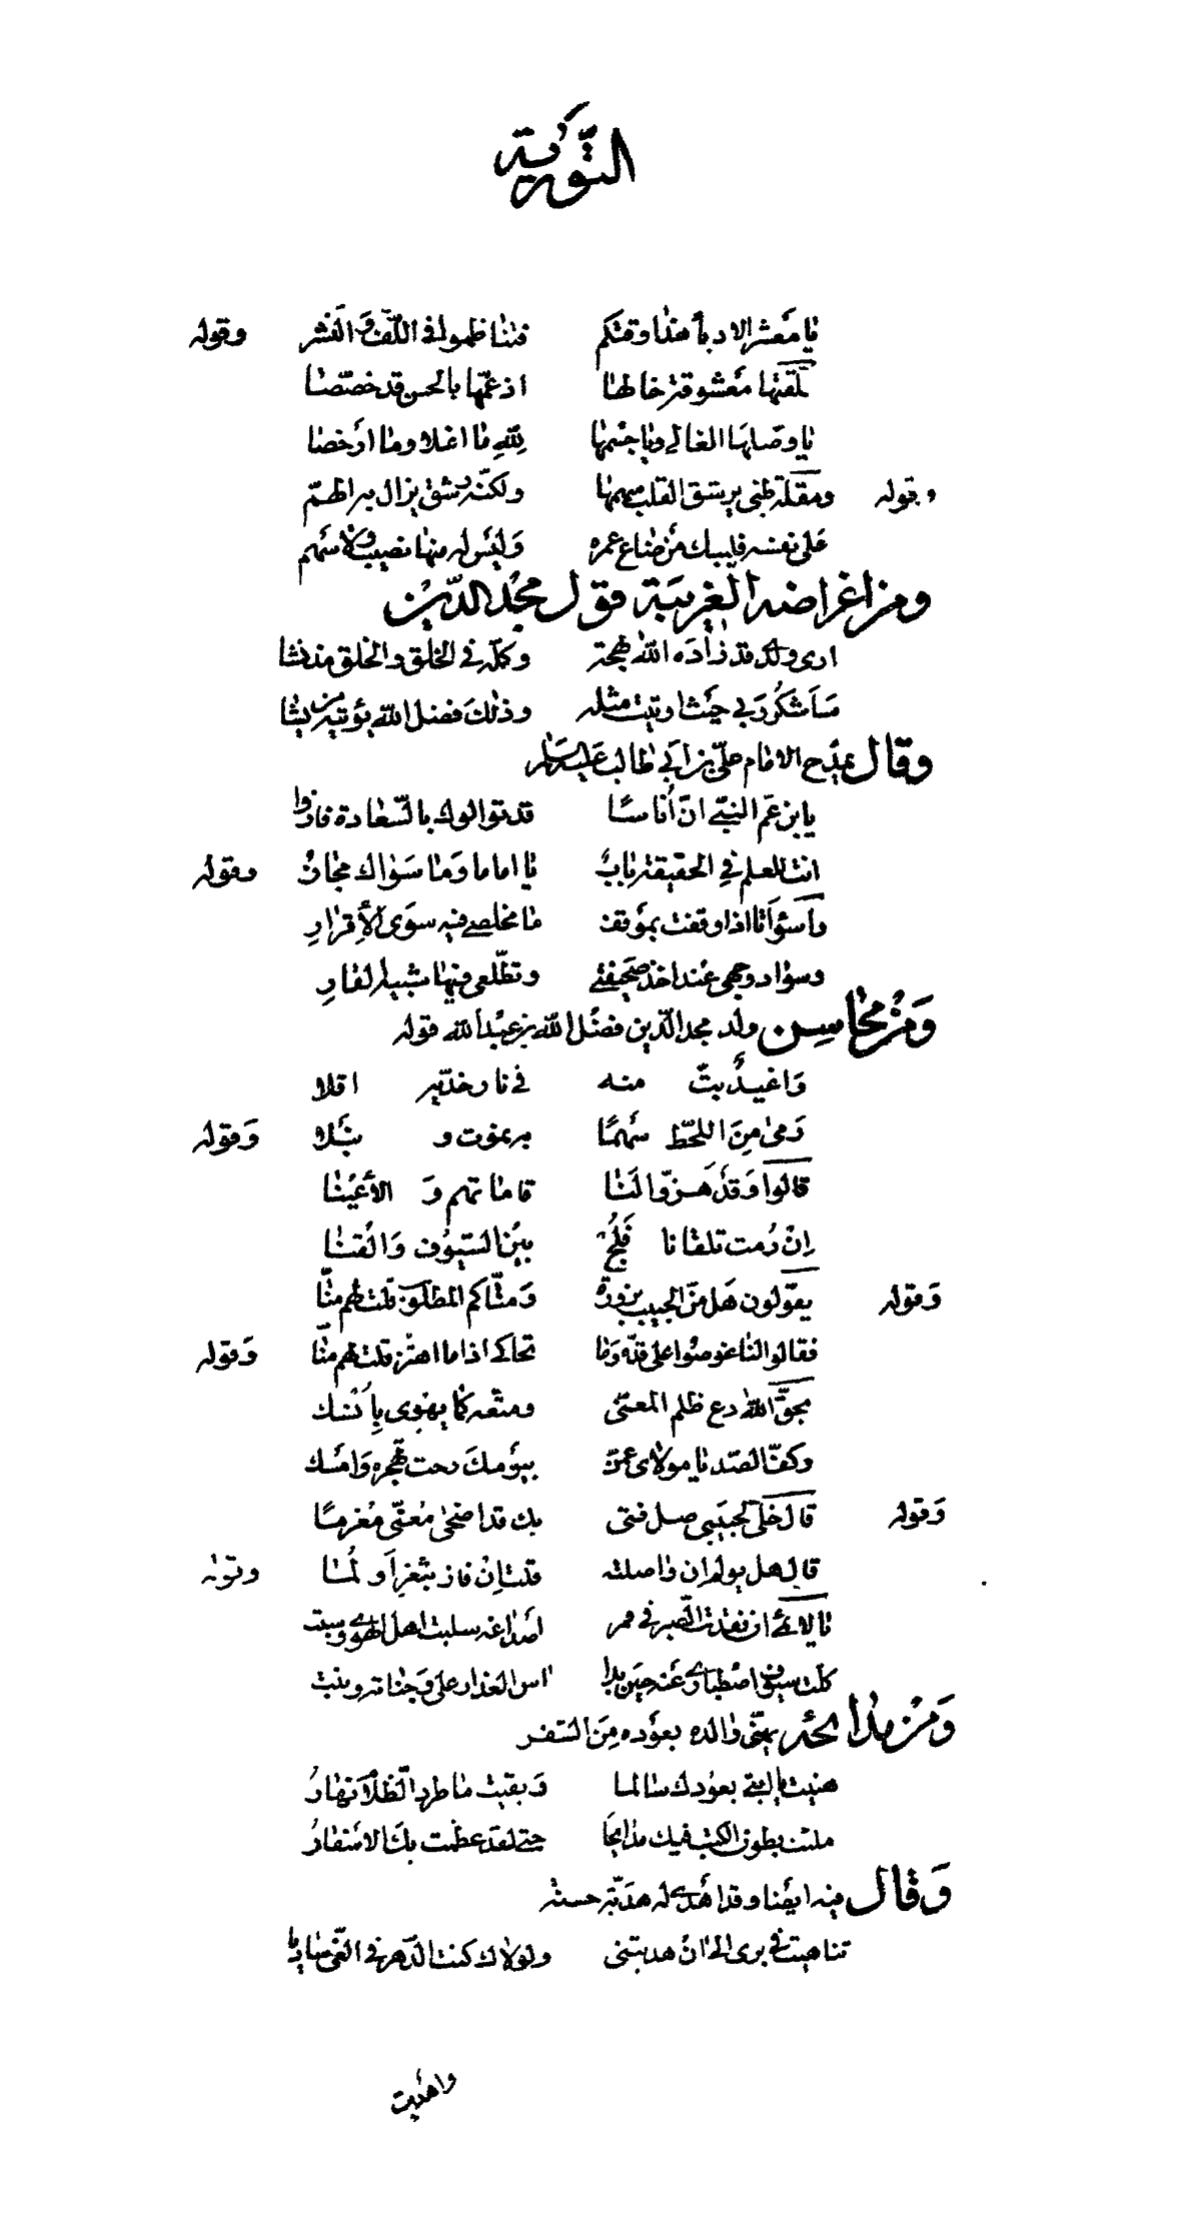 التورية
يا معشر الادبا هذا وقتكم فتناظموا في اللّف والنشر وقوله
علّقتها معشوقة خالها اذ عمّها بالحسن قد خصّصا
يا وصلها الغالي ويا جسمها للّه ما اغلا وما ارخصا
وقوله ومقلة ظبي يرشق القلب سهمها ولكنّه رشق يزال به الهمّ
على نفسه فليبك من ضاع عمره وليس له منها نصيب ولا سهم
ومن اغراضه الغريبة قول مجد الدّين
ارى ولدي قد زاده الله بهجة وكمّله في الخلق والخلق مذ نشا
سأشكر ربي حيث اوتيت مثله وذلك فضل الله يؤتيه من يشا
وقال يمدح الامام علي بن ابي طالب عليه السلام
يا بن عم النبيّ ان أناسًا قد توالوك بالسّعادة فازوا
انت للعلم في الحقيقة باب يا اماما وما سواك مجاز وقوله
واسوأتا اذا وقفت بموقف ما مخلصي فيه سوى الأقرارِ
وسواد وجهي عند اخذ صحيفتي وتطلّعي فيها شبيه القارِ
ومن محاسن ولد مجد الدّين فضل الله بن عبد الله قوله
واغيدٌ بتّ منه في نار خدّيه اقلا
رمى من اللحظ سهمًا به يموت و يبلا وقوله
قالوا وقد هزّوا لنا قاماتهم و الأعينا
إن رمت تلقانا فلج بين السيوف والقنا
وقوله يقولون هل منّ الحبيب بزورة ومنّاكم المطلوب قلت لهم منّا
فقالوا لنا غوصوا على قدّه وما تحاكي اذا ما اهتز قلت لهم منّا وقوله
بحقّ الله دع ظلم المعنّى ومتعه كما يهوى بأنسك
وكفّ الصّد يا مولاي عمّن بيومك رحت تهجره وامسك
وقوله قال خلّي لحبيبي صل فتى بك قد اضحى معنّى مغرمًا
قال هل يولم ان واصلته قلت إن فاز بثغر أو لما وقوله
يا لائمي ان فقدت الصبر في قمر اصداغه سلبت اهل الهوى وسبت
كلت سيوف اصطباري عنه حين بدا آس العذار على وجناته ونبت
ومن مدائحه يهني والده بعوده من السفر
هنيت يا ابتي بعودك سالما وبقيت ما طرد الظلام نهارُ
ملئت بطون الكتب فيك مدايحًا حتى لقد عظمت بك الاسفارُ
وقال فيه ايضا وقد اهدى له هديّة حسنة
تناهيت في بري الى ان هديتني ولولاك كنت الدّهر في الغي ساديا
واهديت